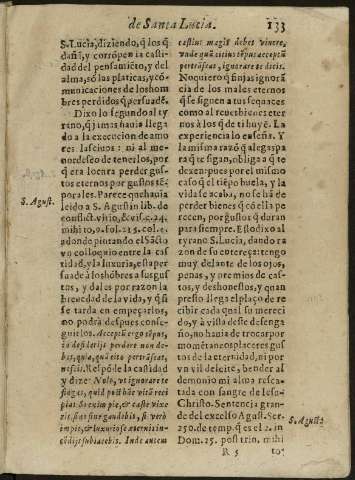 de Santa Lucia. 133
S. Lucia, diziendo, q̃ los q̃
dañã, y corrõpen la casti-
dad del pensamiẽto, y del
alma, sõ las platicas, y cõ-
municaciones de los hom-
bres perdidos q̃ persuadẽ.
Dixo lo segundo al ty-
rano, q̃ jamas hauia llega
do a la execucion de amo
res lasciuos: ni al me-
nor deseo de tenerlos, por
q̃ era locura perder gus-
tos eternos por gustos tẽ-
porales. Parece que hauia
leido a S. Agustin lib. de
conflict. vitio, & vir. c. 24.
mihi to, 9. fol. 215. col. 4.
adonde pintando el Sãcto
vn colloquio entre la cas-
tidad, y la luxuria, esta per
suade a los hõbres a sus gus
tos, y dales por razon la
breuedad de la vida, y q̃ si
se tarda en empeçarlos,
no podrà despues conse-
guirlos.
nefcis. Respõde la castidad
y dize: Nolo, vt ignorare te
S. Agust.
castius magis debes vinere,
No quiero q̃ finjas ignorã
cia de los males eternos
que se signen a tus sequaces
como al reues bienes eter
nos à los que de ti huyẽ. La
experiencia lo enseña. Y
la misma razõ q̃ alegas pa
ra q̃ te sigan, obliga a q̃ te
dexen: pues por el mismo
caso q̃ el tiẽpo huela, y la
vida se acaba, no se hà de
perder bienes q̃ cõ ella pe
recen, por gustos q̃ duran
para siempre. Esto dixo al
tyrano S. Lucia, dando ra
zon de su entereza: tengo
muy delante de los ojos,
penas, y premios de cas-
tos, y deshonestos, y quan
presto llega el plaço de re
cibir cada qual su mereci
do, y à vista deste desenga
ño, no hauia de trocar por
momẽtaneos plazeres gus
tos de la eternidad, ni por
vn vil deleite, bender al
demonio mi alma resca-
tada con sangre de Iesu-
Christo. Sentencia gran-
de del excelso Agust. Ser.
250. de temp. q̃ es el 2. in
Dom. 25. post trin. mihi
S. Agust.
R 5 to.